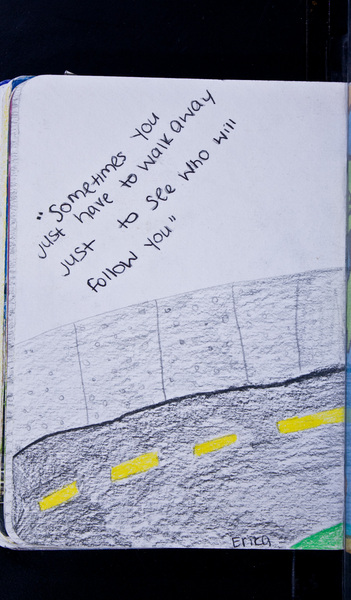 "Sometimes you
just have to walk away
just to see who will
follow you"
Erika